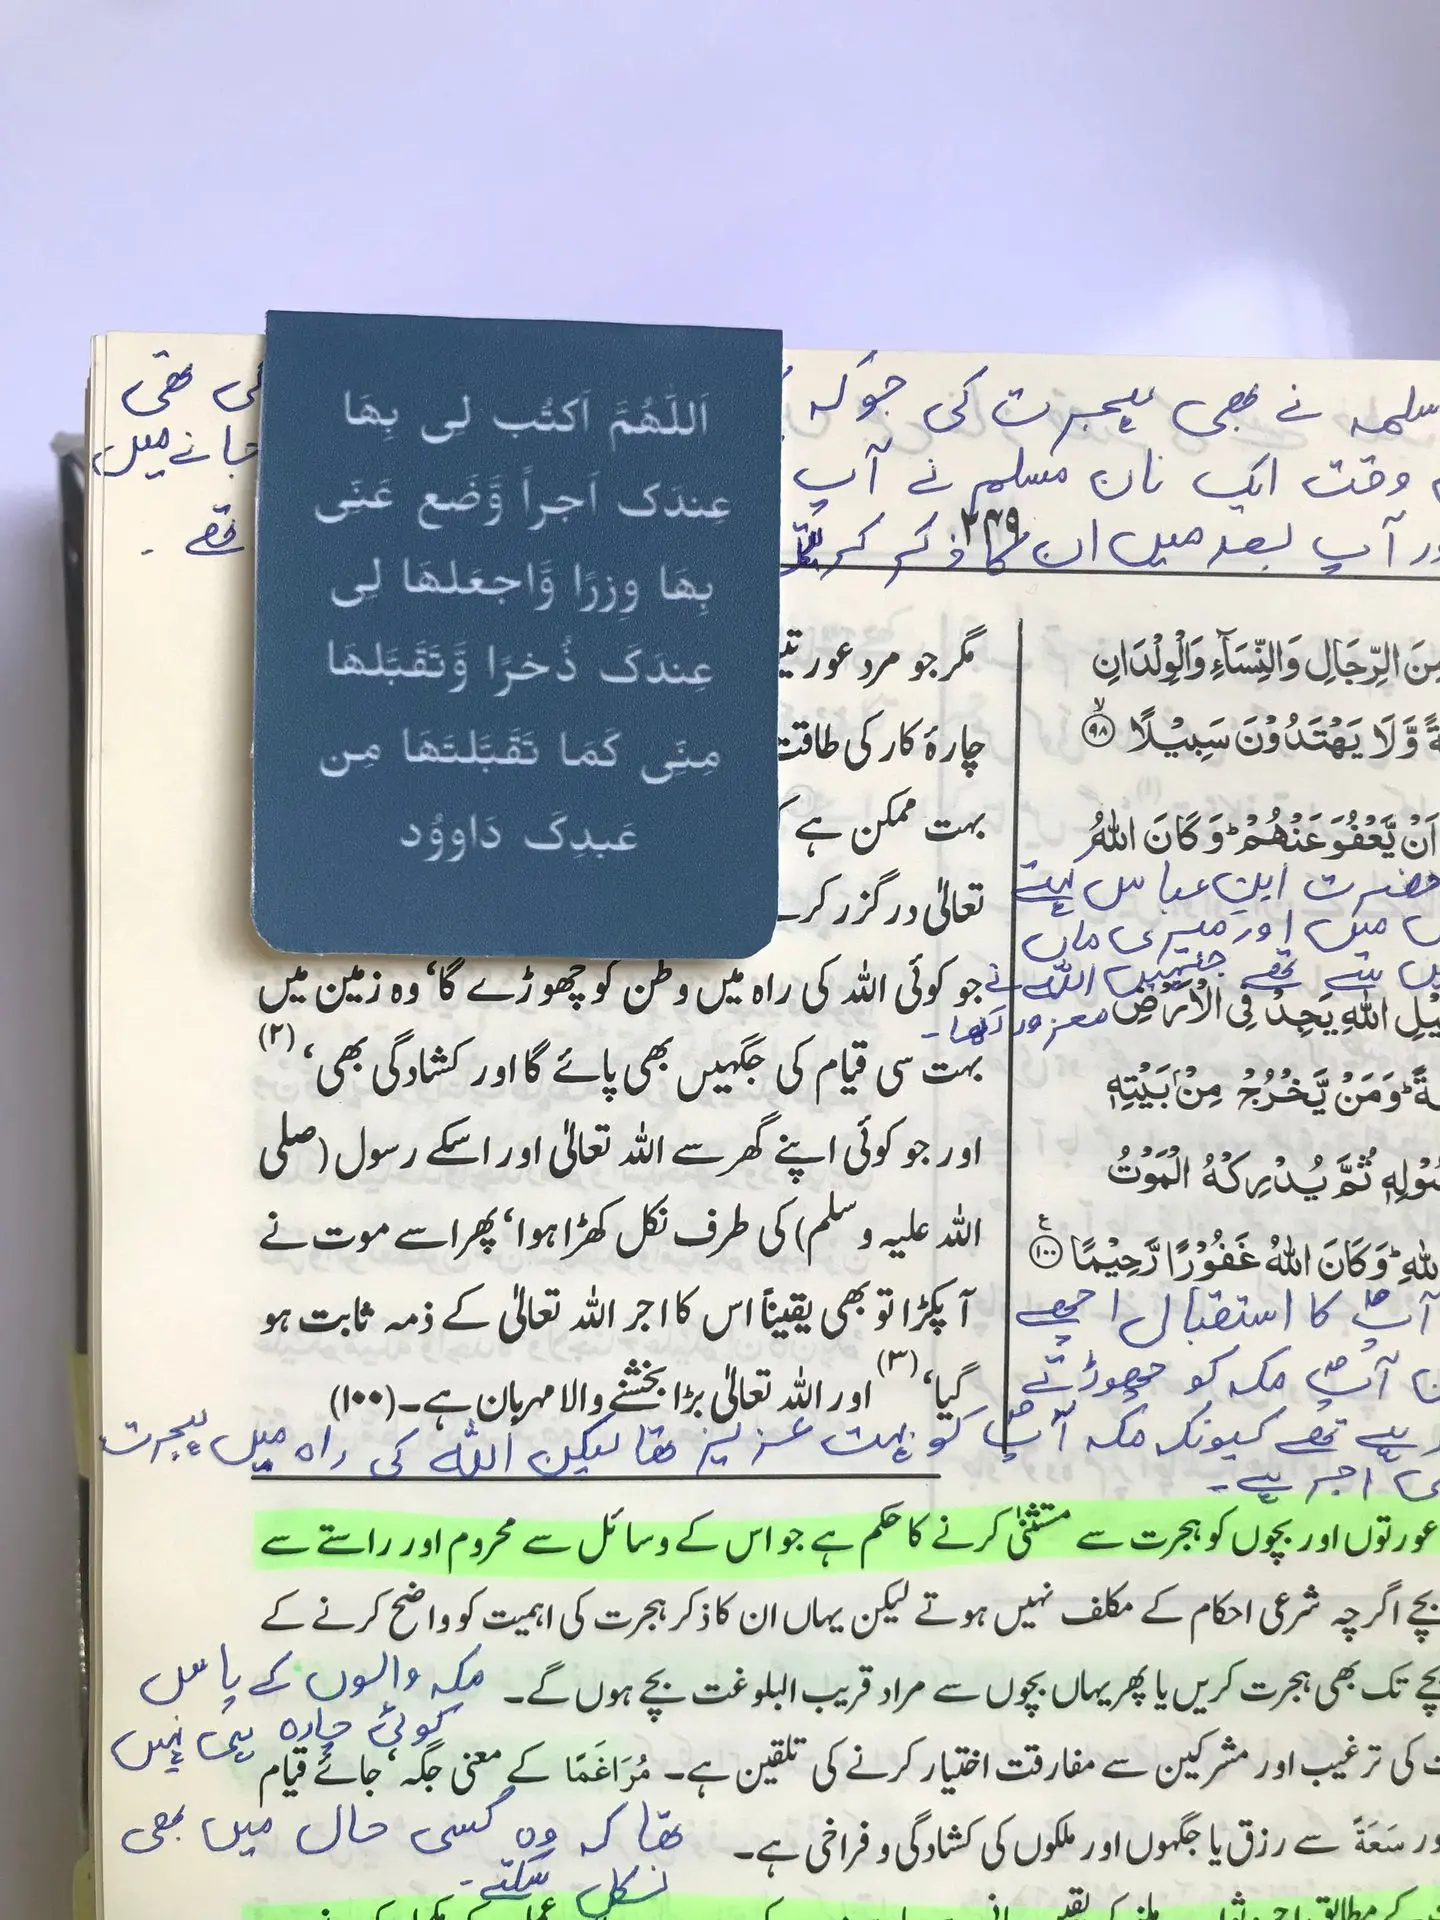 سلمہ نے بھی ہجرت کی جو کہ
کی تھی
وقت ایک نان مسلم نے آپ
جانے میں
ور آپ بعد میں ان کا ذکر کر
تھے ۔
۲۴۹
اَللّٰهُمَّ اَكتُب لِى بِهَا
عِندَكَ اَجراً وَّضَع عَنِّى
بِهَا وِزرًا وَّاجعَلهَا لِى
عِندَكَ ذُخرًا وَّتَقَبَّلهَا
مِنِّى كَمَا تَقَبَّلتَهَا مِن
عَبدِكَ دَاووُد
مِنَ الرِّجَالِ وَالنِّسَآءِ وَالْوِلْدَانِ
ةً وَّلَا يَهْتَدُوْنَ سَبِيْلًا ۙ﴿۹۸﴾
اَنْ يَّعْفُوَ عَنْهُمْ ؕ وَكَانَ اللّٰهُ
حضرت ابن عباس کہتے
میں اور میری ماں
میں سے تھے جنہیں اللہ نے
معزور رکھا ۔
يْلِ اللّٰهِ يَجِدْ فِى الْاَرْضِ
ةً ؕ وَمَنْ يَّخْرُجْ مِنْۢ بَيْتِهٖ
سُوْلِهٖ ثُمَّ يُدْرِكْهُ الْمَوْتُ
للّٰهِ ؕ وَكَانَ اللّٰهُ غَفُوْرًا رَّحِيْمًا ﴿۱۰۰﴾ ع
مگر جو مرد عورتیں
چارۂ کار کی طاقت
بہت ممکن ہے ک
تعالیٰ درگزر کرے
جو کوئی اللہ کی راہ میں وطن کو چھوڑے گا، وہ زمین میں
بہت سی قیام کی جگہیں بھی پائے گا اور کشادگی بھی، (۲)
اور جو کوئی اپنے گھر سے اللہ تعالیٰ اور اسکے رسول (صلی
اللہ علیہ وسلم) کی طرف نکل کھڑا ہوا، پھر اسے موت نے
آ پکڑا تو بھی یقیناً اس کا اجر اللہ تعالیٰ کے ذمہ ثابت ہو
گیا، (۳) اور اللہ تعالیٰ بڑا بخشنے والا مہربان ہے۔ (۱۰۰)
آپؐ کا استقبال اچھے
آپؐ مکہ کو چھوڑتے
رہے تھے کیونکہ مکہ آپؐ کو بہت عزیز تھا لیکن اللہ کی راہ میں ہجرت
کی اجر ہے ۔
عورتوں اور بچوں کو ہجرت سے مستثنیٰ کرنے کا حکم ہے جو اس کے وسائل سے محروم اور راستے سے
بچے اگرچہ شرعی احکام کے مکلف نہیں ہوتے لیکن یہاں ان کا ذکر ہجرت کی اہمیت کو واضح کرنے کے
بچے تک بھی ہجرت کریں یا پھر یہاں بچوں سے مراد قریب البلوغت بچے ہوں گے۔
مکہ والوں کے پاس
کوئی چارہ ہی نہیں
ت کی ترغیب اور مشرکین سے مفارقت اختیار کرنے کی تلقین ہے۔ مُرَاغَمًا کے معنی جگہ، جائے قیام
ور سَعَةً سے رزق یا جگہوں اور ملکوں کی کشادگی و فراخی ہے۔
تھا کہ وہ کسی حال میں بھی
نکل سکتے ۔